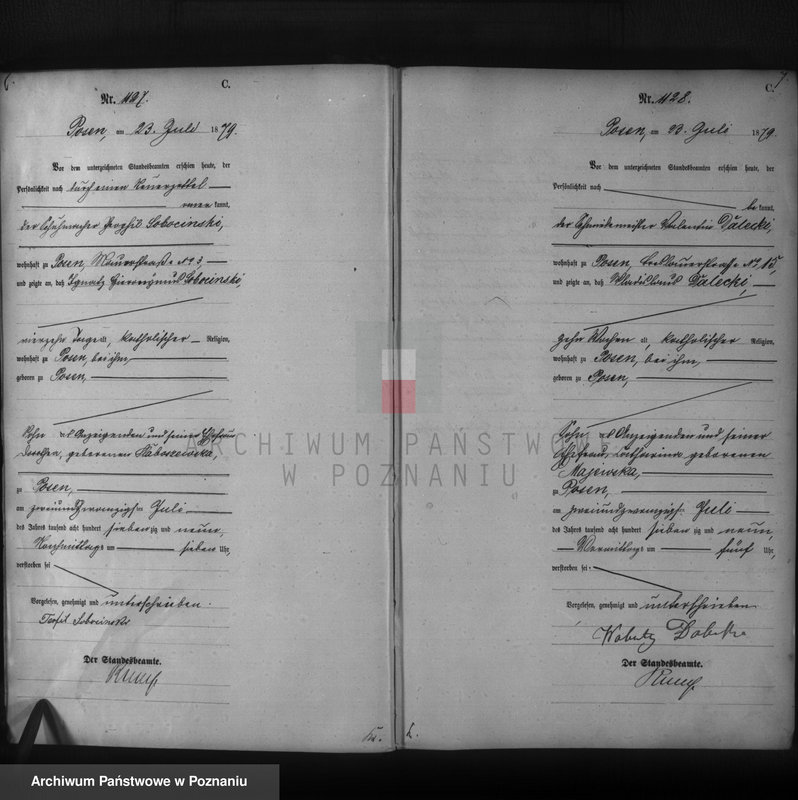 C.
Nr. 1127.
Posen, am 23. Juli 1879.
Vor dem unterzeichneten Standesbeamten erschien heute, der
Persönlichkeit nach durch einen Steuerzettel
aner kannt,
der Schuhmacher Theophil Sobocinski,
wohnhaft zu Posen, Mauerstraße № 3
und zeigte an, daß Ignatz Hieronymus Sobocinski
vierzehn Tage alt, katholischer Religion,
wohnhaft zu Posen, bei ihm,
geboren zu Posen,
Sohn des Anzeigenden und seiner Ehefrau
geborenen
zu Posen,
am zweiundzwanzigsten Juli
des Jahres tausend acht hundert siebenzig und neun,
Nachmittags um sieben Uhr,
verstorben sei
Vorgelesen, genehmigt und unterschrieben.
Teofil Sobocinski
Der Standesbeamte.
C.
Nr. 1128.
Posen, am 23. Juli 1879.
Vor dem unterzeichneten Standesbeamten erschien heute, der
Persönlichkeit nach
be kannt,
der Schmiedemeister Valentin Dalecki,
wohnhaft zu Posen, Breslauerstrasse № 15,
und zeigte an, daß Wladislaus Dalecki,
zehn Wochen alt, katholischer Religion,
wohnhaft zu Posen, bei ihm,
geboren zu Posen,
Sohn des Anzeigenden und seiner
Ehefrau Katharina geborenen
Majewska,
zu Posen,
am zweiundzwanzigsten Juli
des Jahres tausend acht hundert siebenzig und neun,
Vormittags um fünf Uhr,
verstorben sei
Vorgelesen, genehmigt und unterschrieben
Der Standesbeamte.
ARCHIWUM PAŃSTWOWE
W POZNANIU
Archiwum Państwowe w Poznaniu